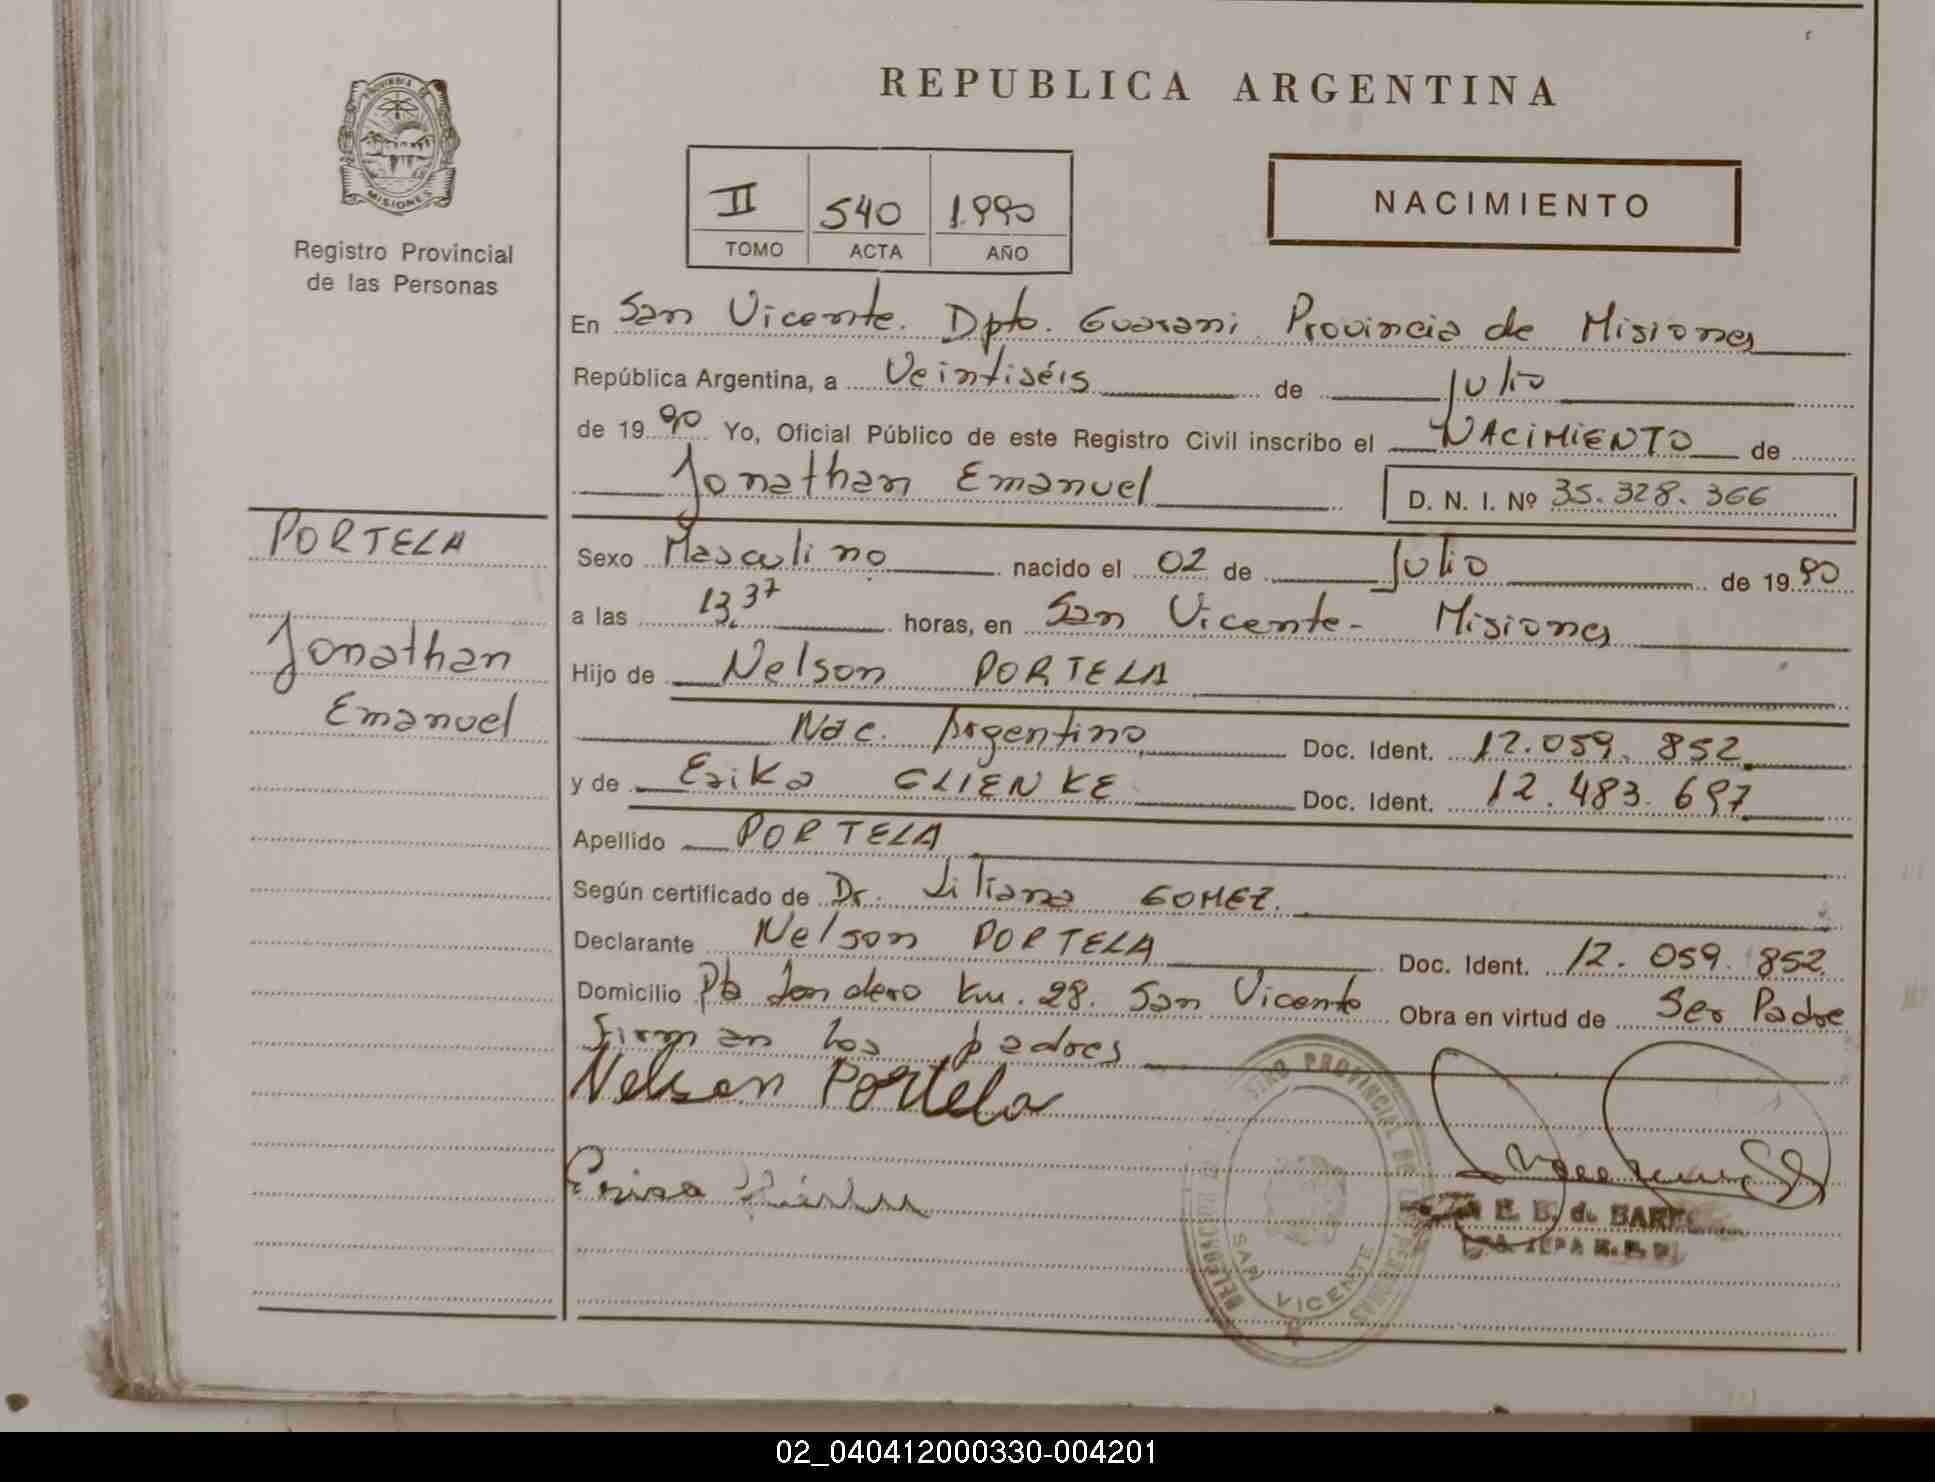 REPUBLICA ARGENTINA
PROVINCIA DE
MISIONES
Registro Provincial
de las Personas
II 540 1.990
TOMO ACTA AÑO
NACIMIENTO
En San Vicente. Dpto. Guarani Provincia de Misiones
República Argentina, a Veintiséis de Julio
de 19 90 Yo, Oficial Público de este Registro Civil inscribo el NACIMIENTO de
Jonathan Emanuel D. N. I. Nº 35.328.366
PORTELA
Jonathan
Emanuel
Sexo Masculino nacido el 02 de Julio de 19 90
a las 13.37 horas, en San Vicente - Misiones
Hijo de Nelson PORTELA
Nac. Argentino Doc. Ident. 12.059.852
y de Erika GLIENKE Doc. Ident. 12.483.697
Apellido PORTELA
Según certificado de Dr. Liliana GOMEZ.
Declarante Nelson PORTELA Doc. Ident. 12.059.852
Domicilio Pb Londero Km. 28. San Vicente Obra en virtud de Ser Padre
Firman los padres
Nelson Portela
Erica
SAN VICENTE
E. B. de
02_040412000330-004201